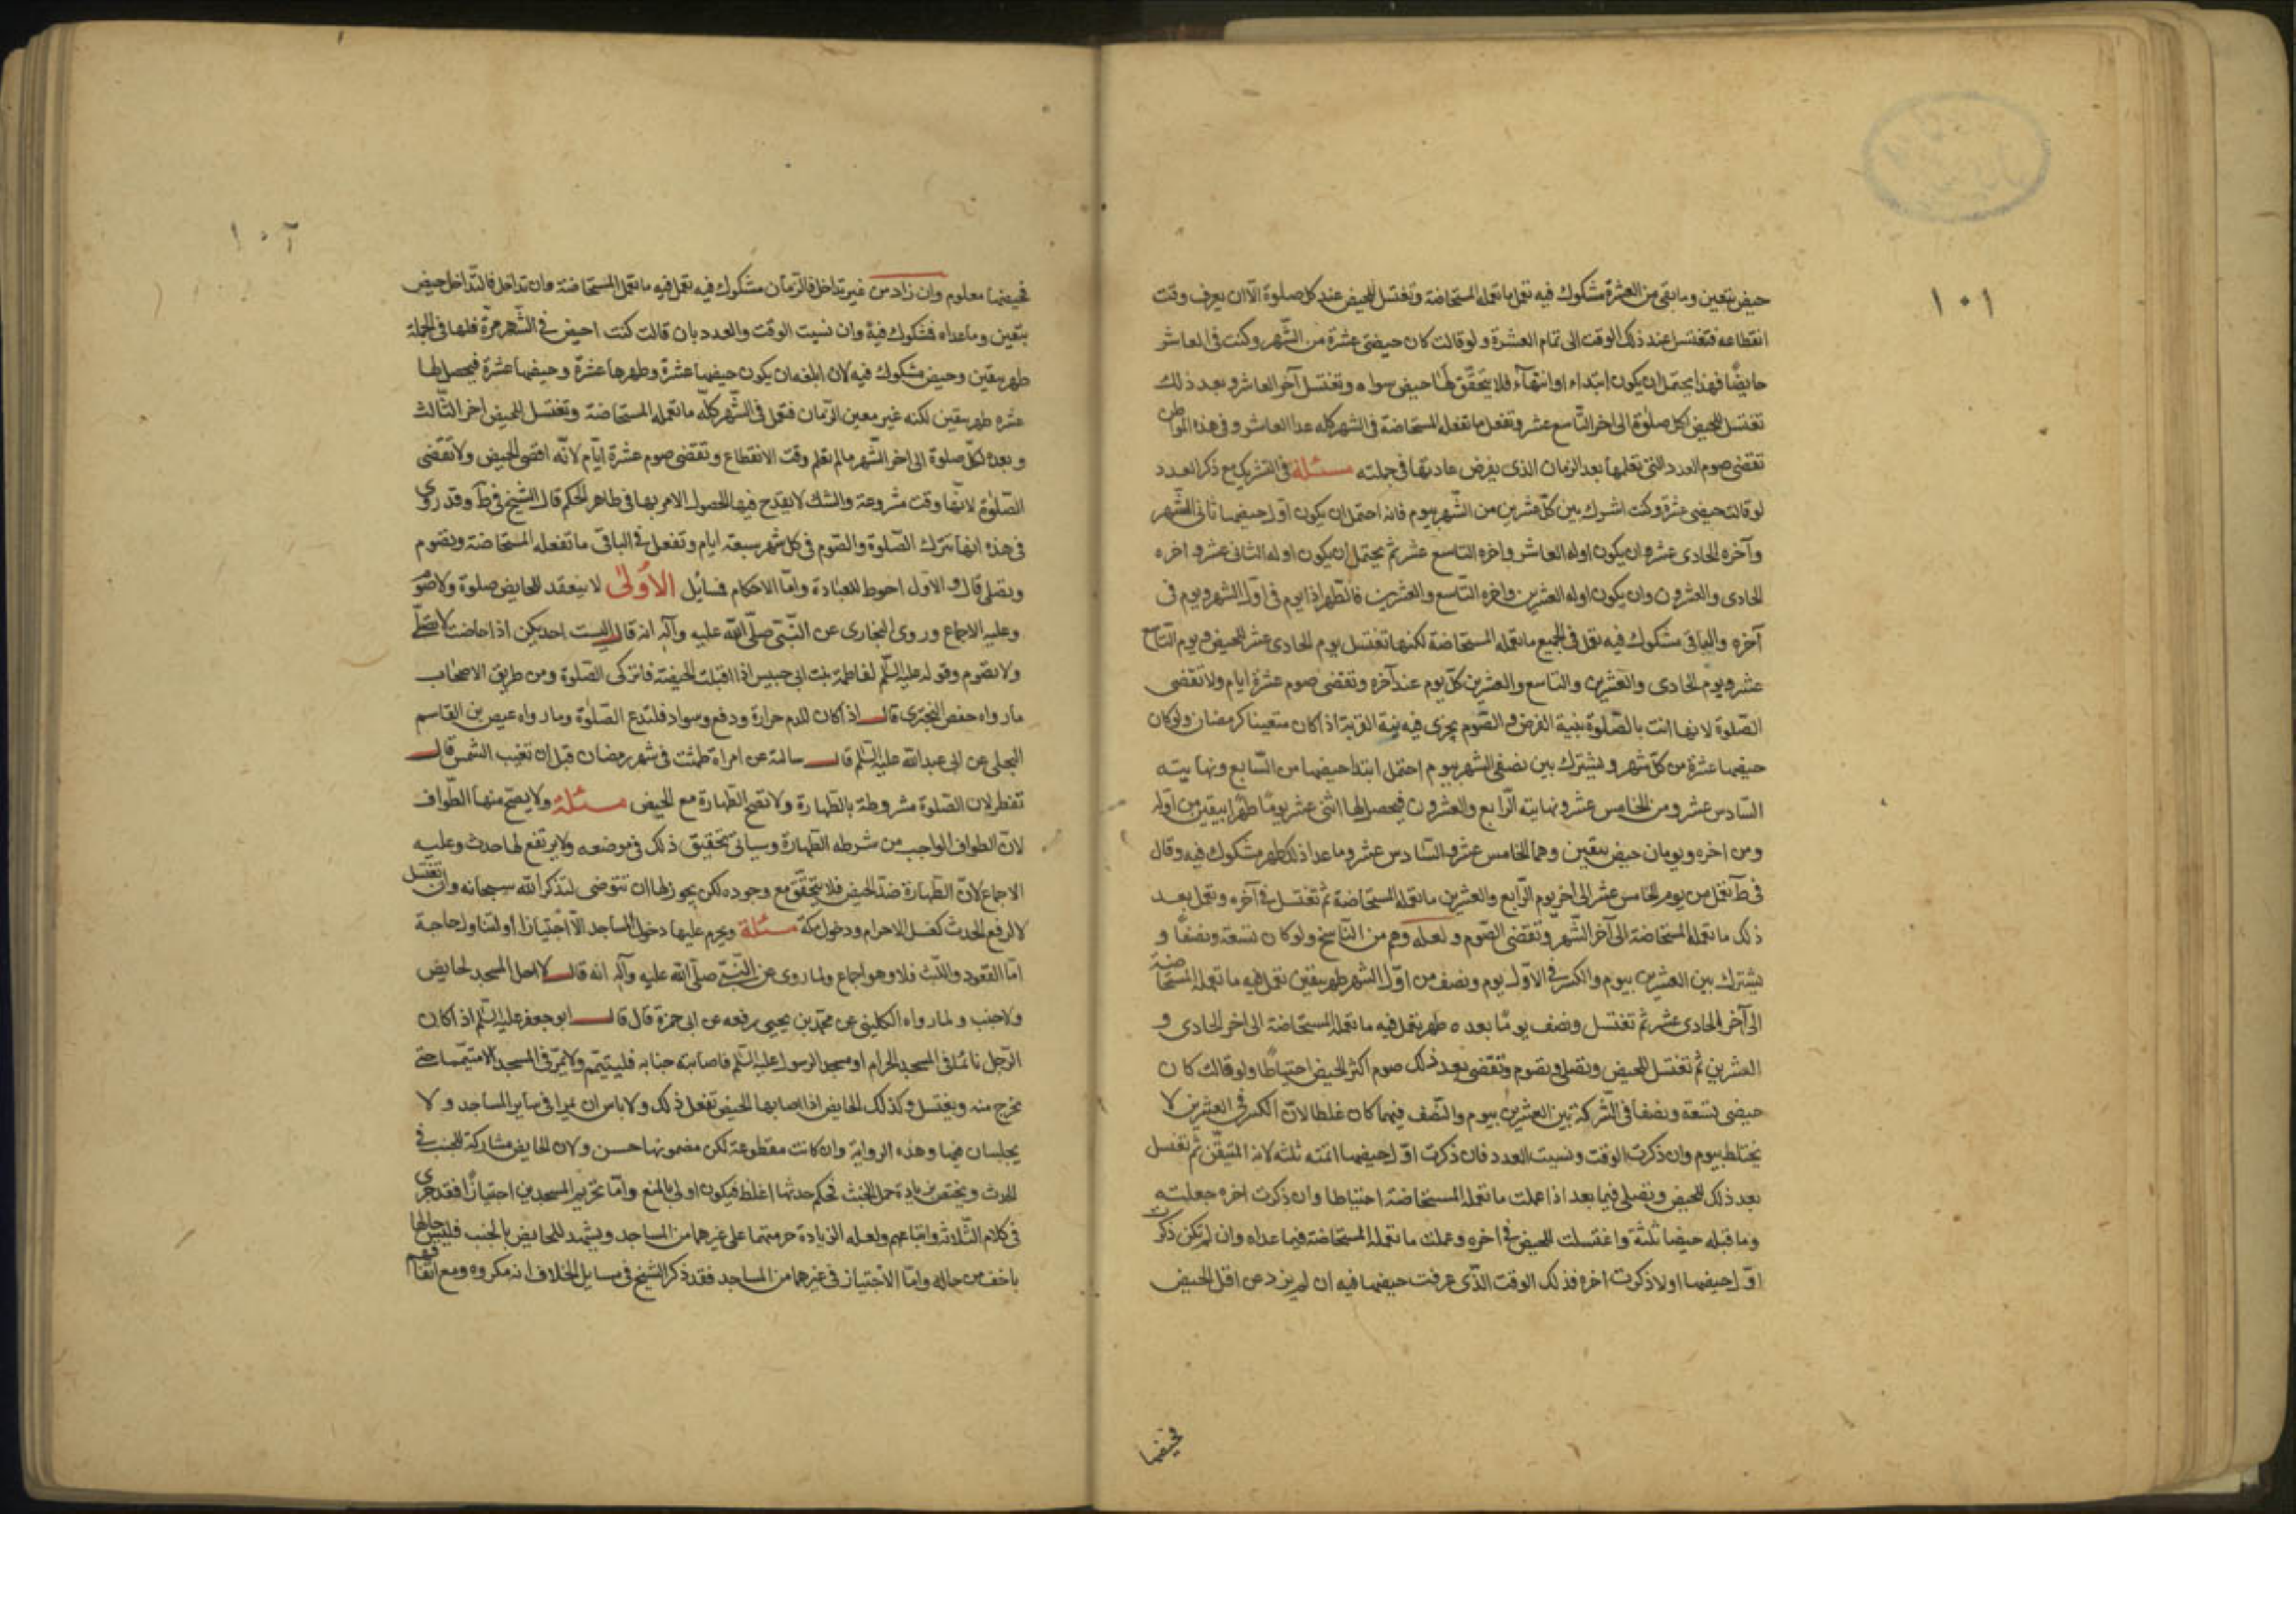 ١٠١
حيض بتعين وما بقى من العشرة مشكوك فيه تعمل ما تعمله المستحاضة وتغتسل للحيض عند كل صلوة الا ان يعرف وقت
انقطاعه فتغتسل عند ذلك الوقت الى تمام العشرة ولو قالت كان حيضى عشرة من الشهر وكنت فى العاشر
حايضًا فهذا يحتمل ان يكون ابتداء او انتهآء فلا يتحقق لها حيض سواه وتغتسل آخر العاشر وبعد ذلك
تغتسل للحيض لكل صلوة الى اخر التاسع عشر وتفعل ما تفعله المستحاضة فى الشهر كله عدا العاشر وفى هذه المواطن
تقضى صوم العدد التى تعلمها بعد الزمان الذى يفرض عادتها فى جملته مسئلة فى التشريك مع ذكر العدد
لو قالت حيضى عشرة وكنت اشرك بين كل عشرين من الشهر بيوم فانه احتمل ان يكون اول حيضها ثانى الشهر
وآخره الحادى عشر وان يكون اوله العاشر واخره التاسع عشر ثم يحتمل ان يكون اوله الثانى عشر واخره
الحادى والعشرون وان يكون اوله العشرين واخره التاسع والعشرين فالطهر اذا يوم فى اول الشهر ويوم فى
آخره والباقى مشكوك فيه تعمل فى الجميع ما تعمله المستحاضة لكنها تغتسل يوم الحادى عشر للحيض ويوم التاسع
عشر ويوم الحادى والعشرين والتاسع والعشرين كل يوم عند آخره وتقضى صوم عشرة ايام ولا تقضى
الصلوة لانها اتت بالصلوة بنية الفرض والصوم يجزى فيه نية القربة اذا كان متعينا كرمضان ولو كان
حيضها عشرة من كل شهر ويشترك بين نصفى الشهر بيوم احتمل ابتدا حيضها من السابع ونهايته
السادس عشر ومن الخامس عشر ونهايته الرابع والعشرون فيحصل لها اثنى عشر يومًا طهرا بيقين من اوله
ومن اخره ويومان حيض بيقين وهما الخامس عشر والسادس عشر وما عدا ذلك طهر مشكوك فيه وقال
فى ط تعمل من يوم الخامس عشر الى اخر يوم الرابع والعشرين ما تعمله المستحاضة ثم تغتسل فى آخره وتعمل بعد
ذلك ما تعمله المستحاضة الى آخر الشهر وتقضى الصوم ولعله وهم من الناسخ ولو كان تسعة ونصفًا و
يشترك بين العشرين بيوم والكسر فى الاول يوم ونصف من اول الشهر طهر بيقين تعمل فيه ما تعمله المستحاضة
الى آخر الحادى عشر ثم تغتسل ونصف يومًا بعده طهر تعمل فيه ما تعمله المستحاضة الى اخر الحادى و
العشرين ثم تغتسل للحيض وتصلى وتصوم وتقضى بعد ذلك صوم اكثر الحيض احتياطًا ولو قالت كان
حيضى تسعة ونصفًا فى الشركة بين العشرين بيوم والنصف فيهما كان غلطا لان الكسر فى العشرين لا
يختلط بيوم وان ذكرت الوقت ونسيت العدد فان ذكرت اول حيضها اتمته ثلثه لانه المتيقن ثم تغتسل
بعد ذلك للحيض وتصلى فيما بعد اذا عملت ما تعمله المستحاضة احتياطا وان ذكرت اخره جعلته
وما قبله حيضا ثلثة واغتسلت للحيض فى اخره وعملت ما تعمله المستحاضة فيما عداه وان لم تكن ذكرت
اول حيضها او لا ذكرت اخره فذلك الوقت الذى عرفت حيضها فيه ان لم يزد عن اقل الحيض
فحيضها
١٠٢
فحيضها معلوم وان زاد من غير تداخل فالزمان مشكوك فيه تعمل فيه ما تعمل المستحاضة وان تداخل فالتداخل حيض
بتعين وما عداه فمشكوك فيه وان نسيت الوقت والعدد بان قالت كنت احيض فى الشهر مرة فلها فى الجملة
طهر بيقين وحيض مشكوك فيه لان ابلغه ان يكون حيضها عشرة وطهرها عشرة وحيضها عشرة فيحصل لها
عشره طهر بيقين لكنه غير معين الزمان فتعمل فى الشهر كله ما تعمله المستحاضة وتغتسل للحيض اخر الثالث
وبعده لكل صلوة الى اخر الشهر ما لم تعلم وقت الانقطاع وتقضى صوم عشرة ايام لانه اقصى الحيض ولا تقضى
الصلوة لانها وقت مشروعة والشك لا يقدح فيها لحصول الامر بها فى ظاهر الحكم قال الشيخ فى ط وقد روى
فى هذه انها تترك الصلوة والصوم فى كل شهر سبعة ايام وتفعل فى الباقى ما تفعله المستحاضة وتصوم
وتصلى قال والاول احوط للعبادة واما الاحكام فمسايل الاولى لا ينعقد للحايض صلوة ولا صوم
وعليه الاجماع وروى البخارى عن النبى صلى الله عليه وآله انه قال اليست احديكن اذا حاضت لا تصلى
ولا تصوم وقوله عليه السلم لفاطمة بنت ابى حبيس اذا اقبلت الحيضة فاتركى الصلوة ومن طريق الاصحاب
ما رواه حفص البخترى قال اذا كان للدم حرارة ودفع وسواد فلتدع الصلوة وما رواه عيص بن القاسم
البجلى عن ابى عبد الله عليه السلم قال سالته عن امراة طمثت فى شهر رمضان قبل ان تغيب الشمس قال
تفطر لان الصلوة مشروطة بالطهارة ولا تصح الطهارة مع الحيض مسئلة ولا يصح منها الطواف
لان الطواف الواجب من شرطه الطهارة وسياتى تحقيق ذلك فى موضعه ولا يرتفع لها حدث وعليه
الاجماع لان الطهارة ضد الحيض فلا يتحقق مع وجوده لكن يجوز لها ان تتوضى لتذكر الله سبحانه وان تغتسل
لا لرفع الحدث كغسل الاحرام ودخول مكة مسئلة ويحرم عليها دخول المساجد الا اجتيازا او لتناول حاجة
اما القعود واللبث فلا وهو اجماع ولما روى عن النبى صلى الله عليه وآله انه قال لا احل المسجد لحايض
ولا جنب ولما رواه الكلينى عن محمد بن يحيى رفعه عن ابى حمزة قال قال ابو جعفر عليه السلم اذا كان
الرجل نائما فى المسجد الحرام او مسجد الرسول عليه السلم فاصابته جنابه فليتيمم ولا يمر فى المسجد الا متيمما حتى
يخرج منه ويغتسل وكذلك الحايض اذا اصابها الحيض تفعل ذلك ولا باس ان يمرا فى ساير المساجد ولا
يجلسان فيها وهذه الرواية وان كانت مقطوعة لكن مضمونها حسن ولان الحايض مشاركة للجنب فى
الحدث ويختص بزيادة حمل الخبث فحكم حدثها اغلظ فيكون اولى بالمنع واما تحريم المسجدين اجتيازًا فقد جرى
فى كلام الثلاثة واتباعهم ولعله الزيادة حرمتهما على غيرهما من المساجد ويشهد للحايض بالجنب فليس حالها
باخف من حاله واما الاجتياز فى غيرهما من المساجد فقد ذكر الشيخ فى مسايل الخلاف انه مكروه ومع اتفاقهم